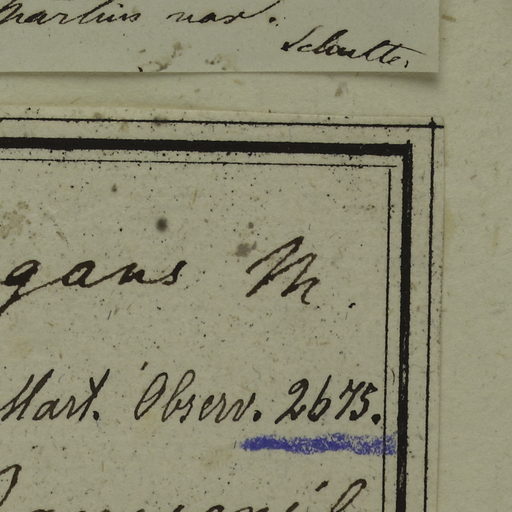 Martius nov.
Schultes.
gans M.
Mart. Observ. 2675.